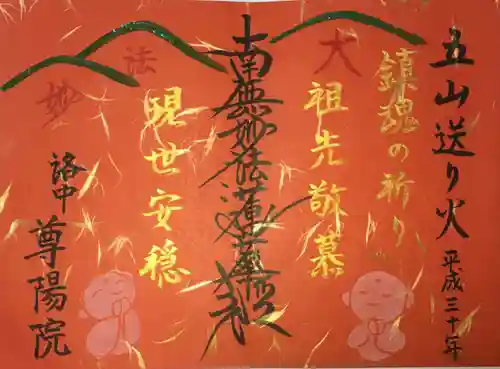 五山送り火
平成三十年
鎮魂の祈り
大
祖先敬慕
南無妙法蓮華経
法
現世安穏
妙
洛中
尊陽院